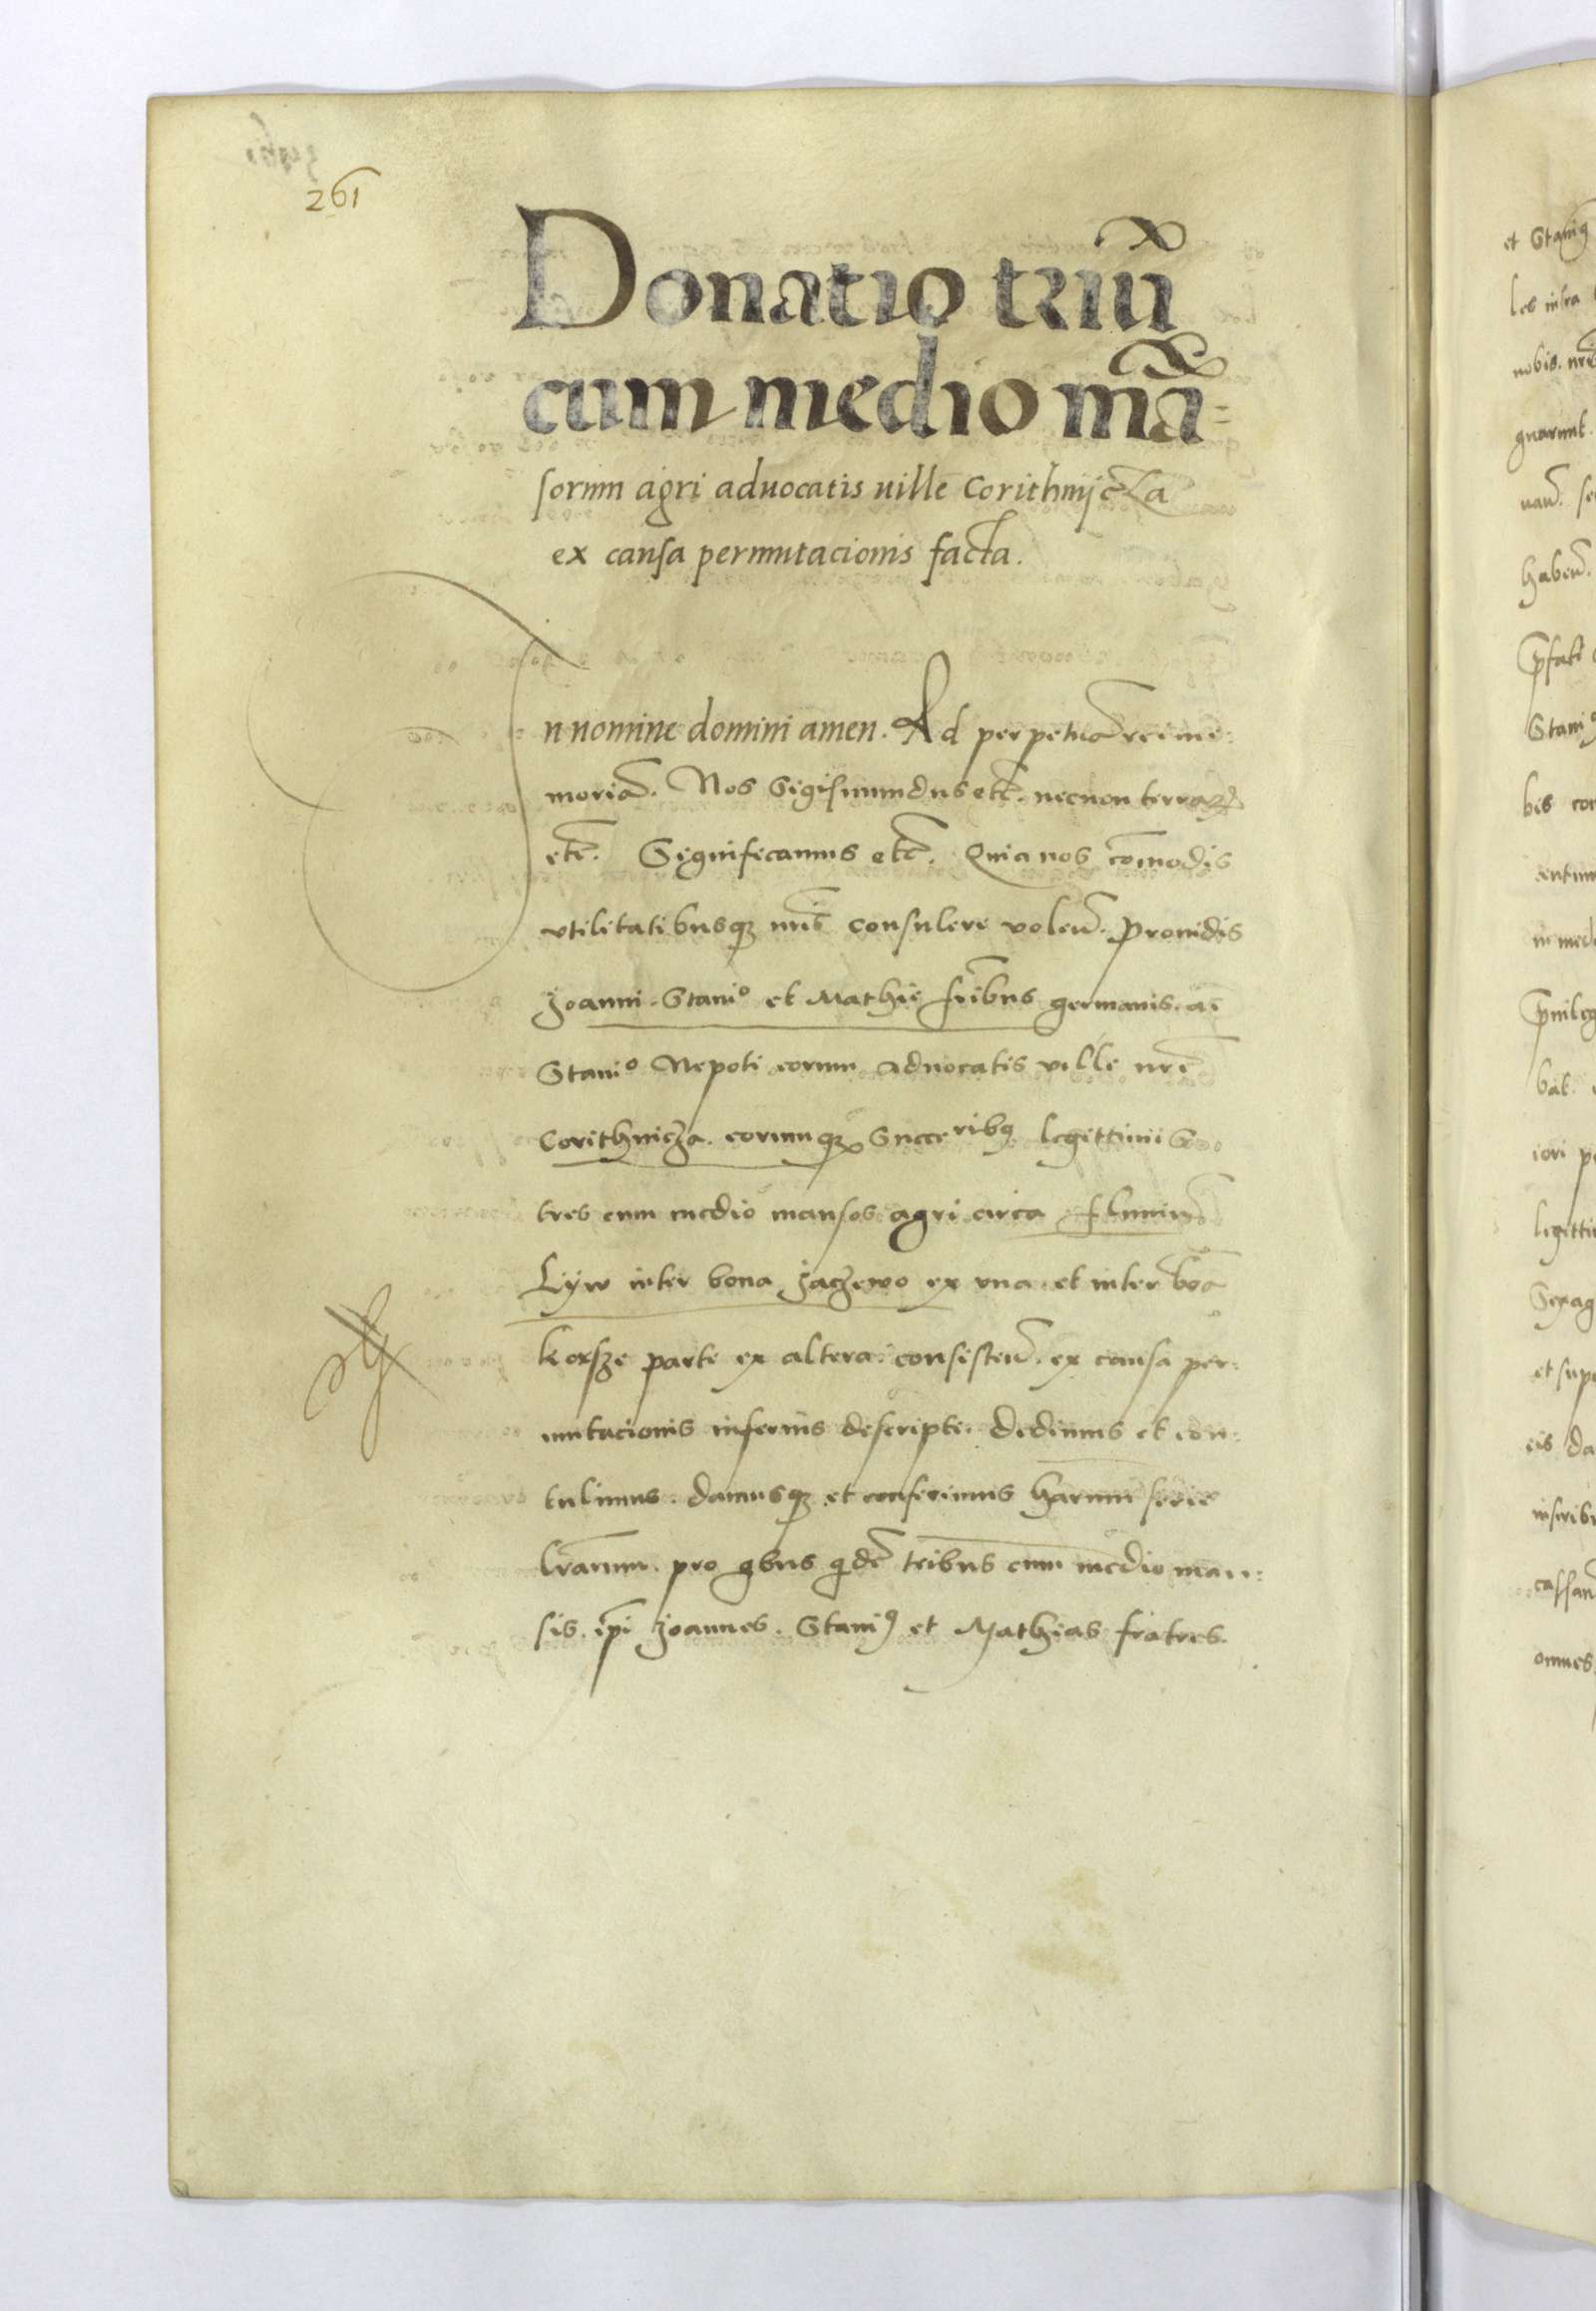 261
Donatio triū
cum medio mā=
sorum agri aduocatis uille Corithnijcza
ex causa permutacionis facta.
In nomine domini amen. Ad perpetuā rei me:
moriā. Nos Sigismundus etc̄. necnon terrarꝝ
etc̄. Significamus etc̄. Quia nos com̄odis
vtilitatibusqꝫ nr̄is consulere volen̄. Prouidis
Joanni. Stanio et Mathie frībus germanis. ac
Stanio Nepoti eorum aduocatis ville nrē
Corithnicza. eorumqꝫ Succeribꝯ legittimis
tres cum medio mansos agri circa fluuiū
Lyw inter bona Jaczewo ex vna. et inter boā
Korsze parte ex altera. consisten̄. ex causa per:
mutacionis inferius descripte. dedimus et con:
tulimus. damusqꝫ et conferimus harum serie
lrarum. pro qbus qdē tribus cum medio man:
sis. ipī Joannes. Staniꝯ et Mathias fratres.
et Staniꝯ
les infra
nobis. nrīs
gnarunt.
haben̄.
p̄fati
Staniꝯ
bis con
in med
p̄uileg
bat.
iori p
legitti
Sexag
et sup
eis da
inscrib
cassan
omnes